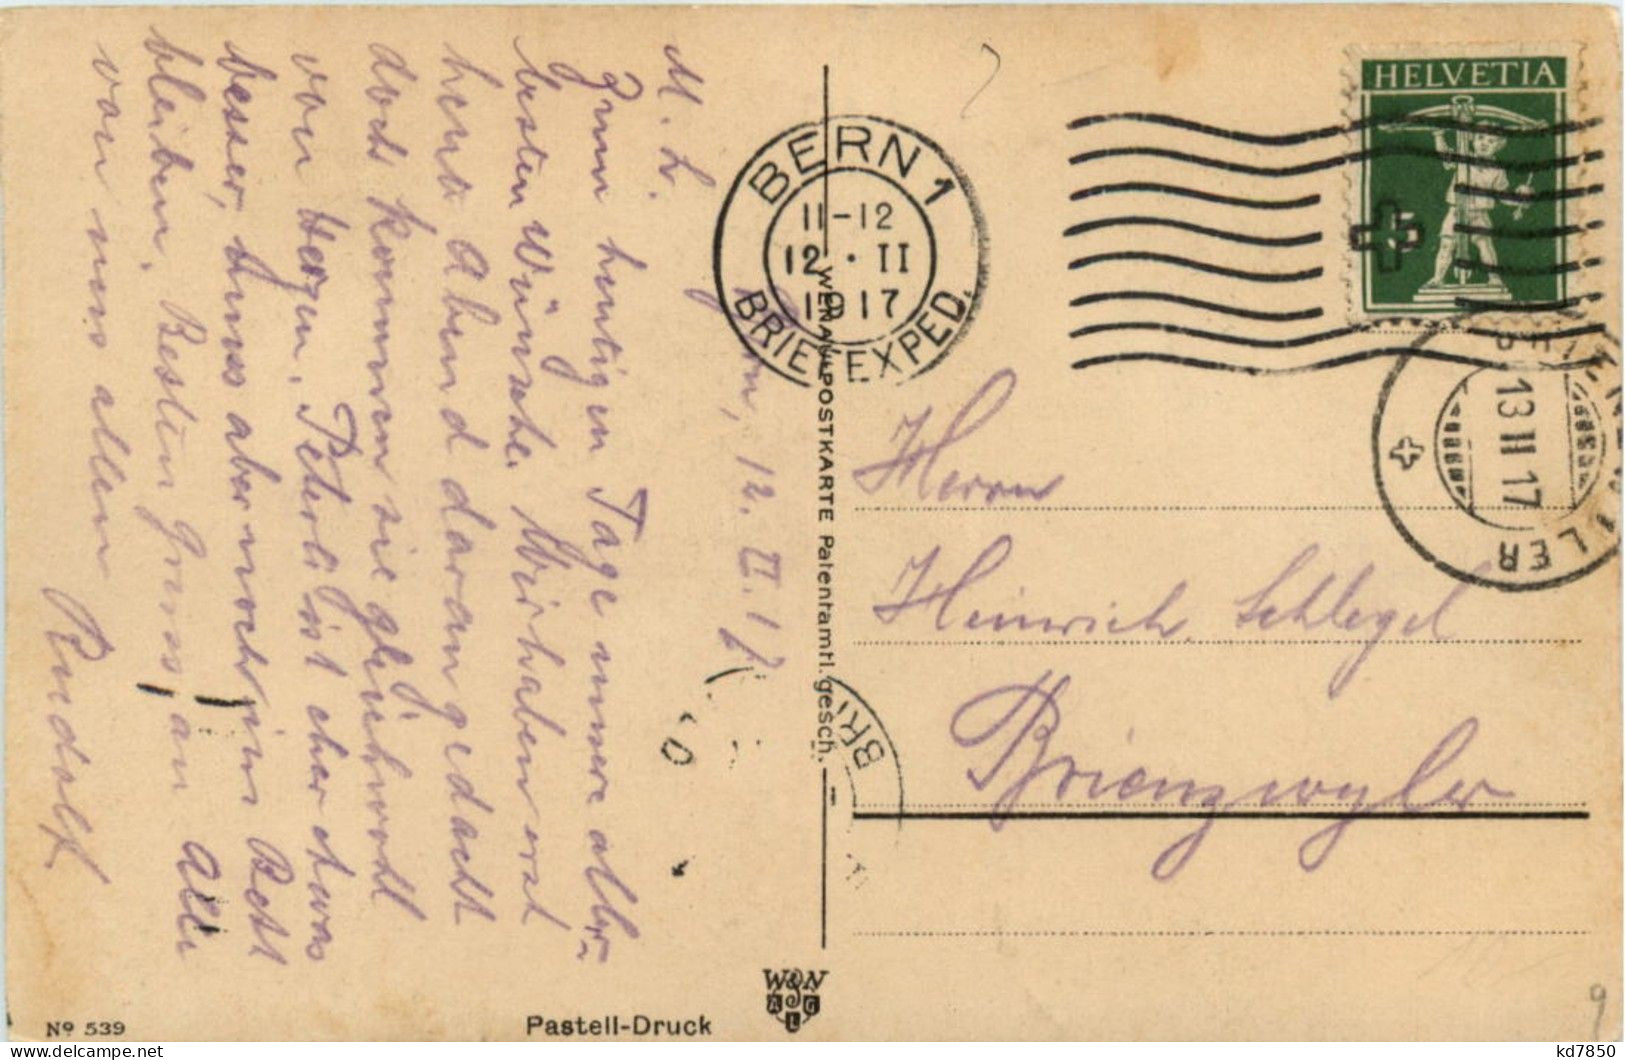 Bern, 12. II. 17
M. L.
Zum heutigen Tage unsere aller-
besten Wünsche. Wir haben erst
heute Abend daran gedacht
doch kommen sie gleichwohl
von Herzen. Peterli ist eher etwas
besser, muss aber noch im Bett
bleiben. Besten Gruss an alle
von uns allen
Rudolf
HELVETIA
BERN 1
11-12
12 · II
1917
BRIEFEXPED.
13 II 17
WENAU-POSTKARTE Patentamtl. gesch.
Herrn
Heinrich Schlegel
Brienzwyler
BRI
W&N
A G
L
Nº 539
Pastell-Druck
9
kd7850